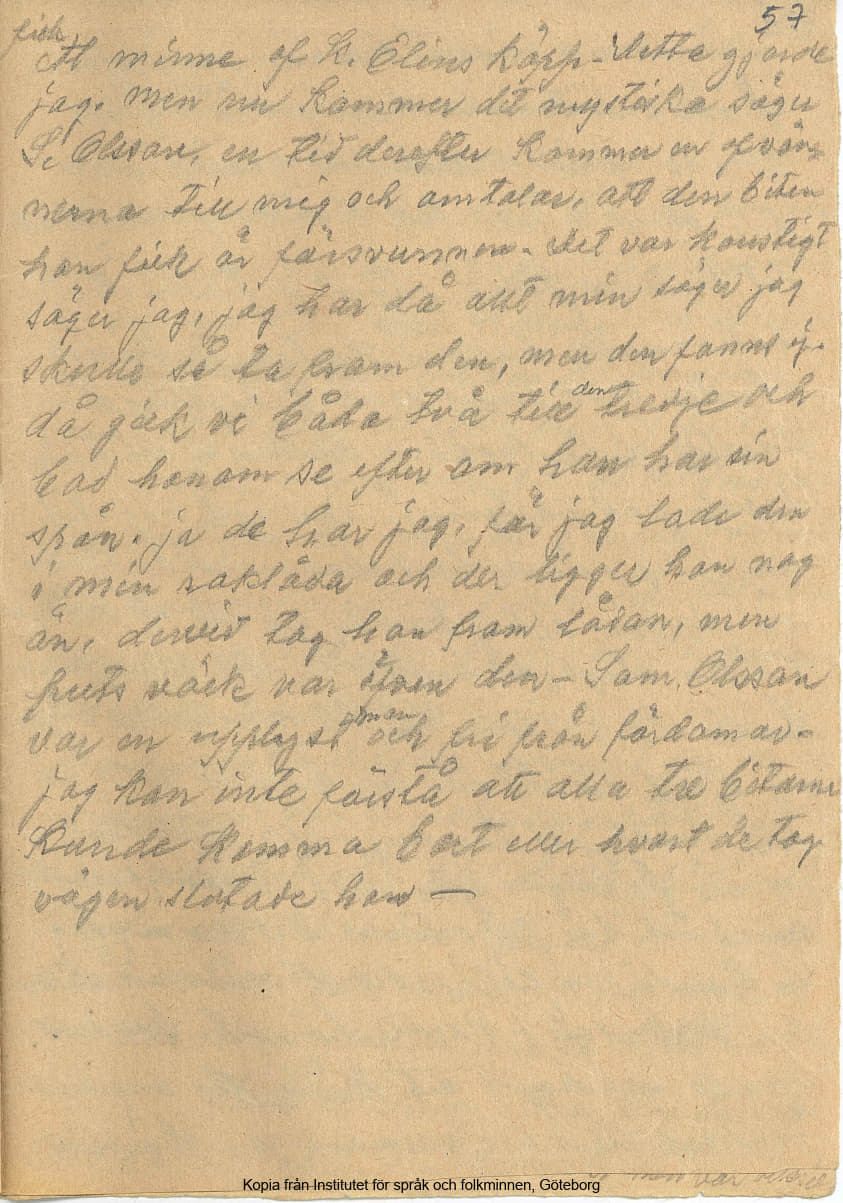 57
fick
Ett minne af St. Elins käpp - detta gjorde
jag. men nu kommer det mystiska säger
S. Olsson, en tid derefter kommer en af vän-
nerna till mig och omtalar, att den biten
han fick är försvunnen - det var konstigt
säger jag, jag har då allt min säger jag
skulle så ta fram den, men den fanns ej.
då gick vi båda två till den tredje och
bad honom se efter om han har sin
spån. ja de har jag, för jag lade den
i min raklåda och der ligger han nog
än, dervid tog han fram lådan, men
puts väck var äfven den - Sam. Olsson
var en upplyst man och fri från fördomar -
jag kan inte förstå att alla tre bitarne
kunde komma bort eller hvart de tog
vägen slutade han —
men var
Kopia från Institutet för språk och folkminnen, Göteborg